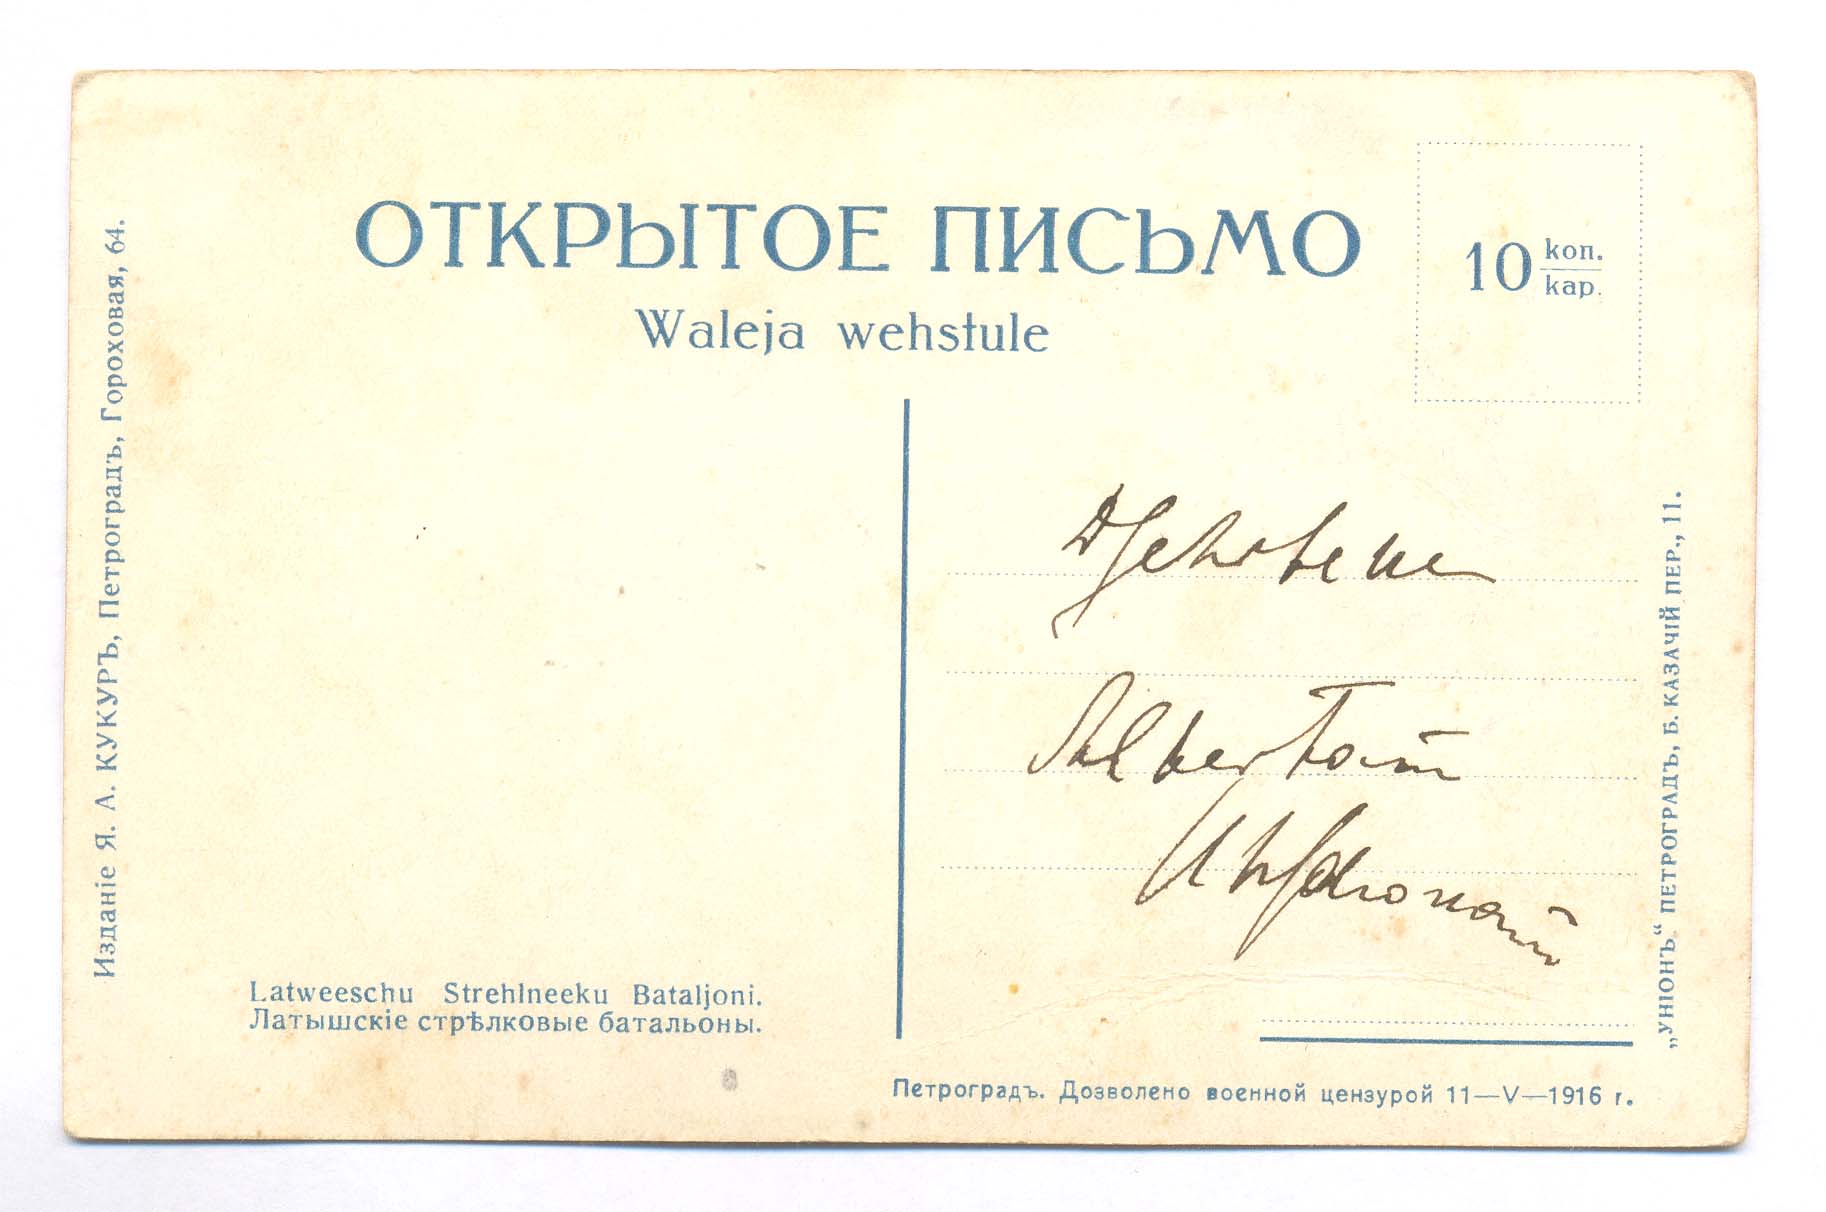 ОТКРЫТОЕ ПИСЬМО
Waleja wehstule
10 коп.
kap.
Изданіе Я. А. КУКУРЪ, Петроградъ, Гороховая, 64.
Albertam
„УНІОНЪ“ ПЕТРОГРАДЪ, Б. КАЗАЧІЙ ПЕР., 11.
Latweeschu Strehlneeku Bataljoni.
Латышскіе стрѣлковые батальоны.
Петроградъ. Дозволено военной цензурой 11—V—1916 г.